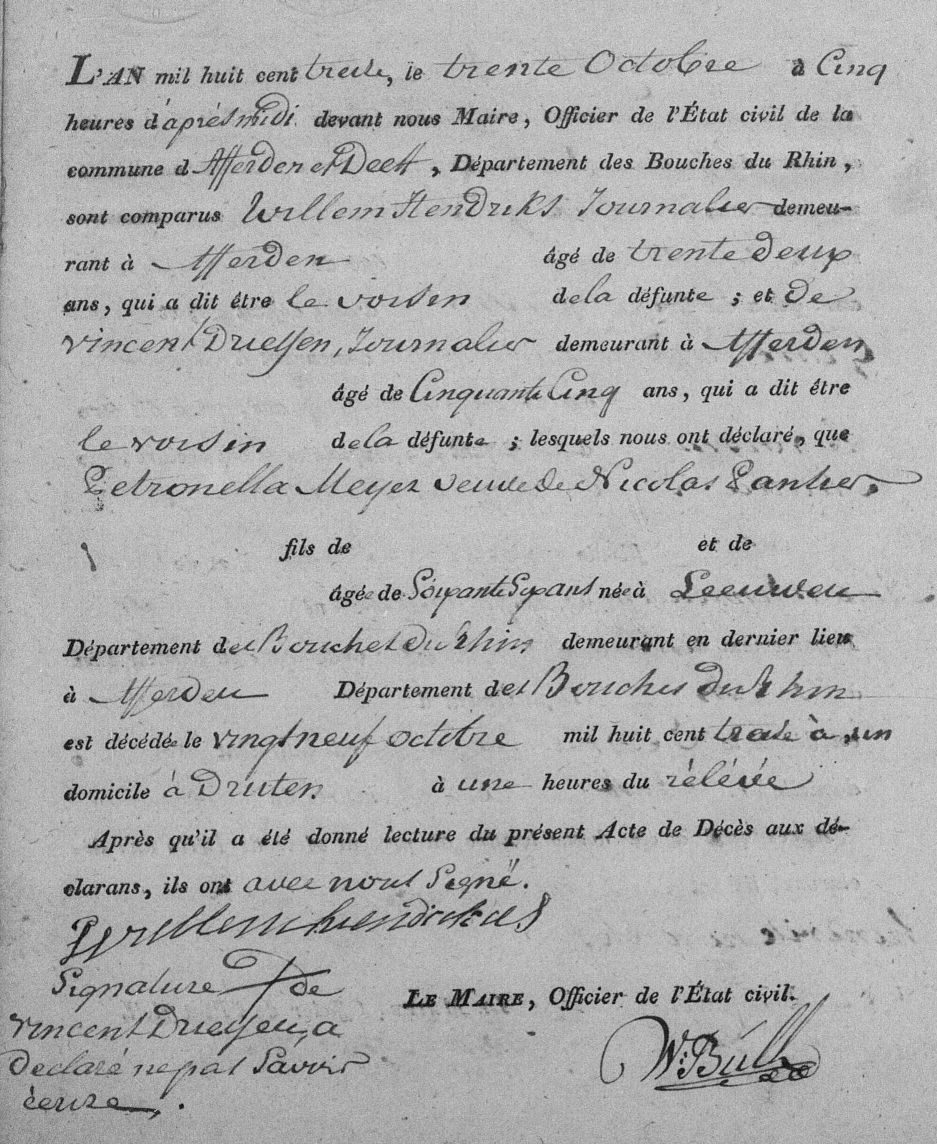 L'AN mil huit cent treize, le trente Octobre à Cinq
heures d'aprèsmidi devant nous Maire, Officier de l'État civil de la
commune d'Afferden et Deest, Département des Bouches du Rhin,
sont comparus Willem Hendriks Journalier demeu-
rant à Afferden âgé de trente deux
ans, qui a dit être le voisin de la défunte ; et de
Vincent Driessen, Journalier demeurant à Afferden
âgé de Cinquante Cinq ans, qui a dit être
le voisin de la défunte ; lesquels nous ont déclaré, que
Petronella Meyer veuve de Nicolas
fils de et de
âgée de Soixante Six ans née à Leeuwen
Département des Bouches du Rhin demeurant en dernier lieu
à Afferden Département des Bouches du Rhin
est décédée le vingt neuf octobre mil huit cent treize à un
domicile à Druten à une heures du rélévée
Après qu'il a été donné lecture du présent Acte de Décès aux dé-
clarans, ils ont avec nous Signé.
Willem hendriks
Signature de
Vincent Driessen, a
Declaré ne pas Savoir
écrire.
LE MAIRE, Officier de l'État civil.